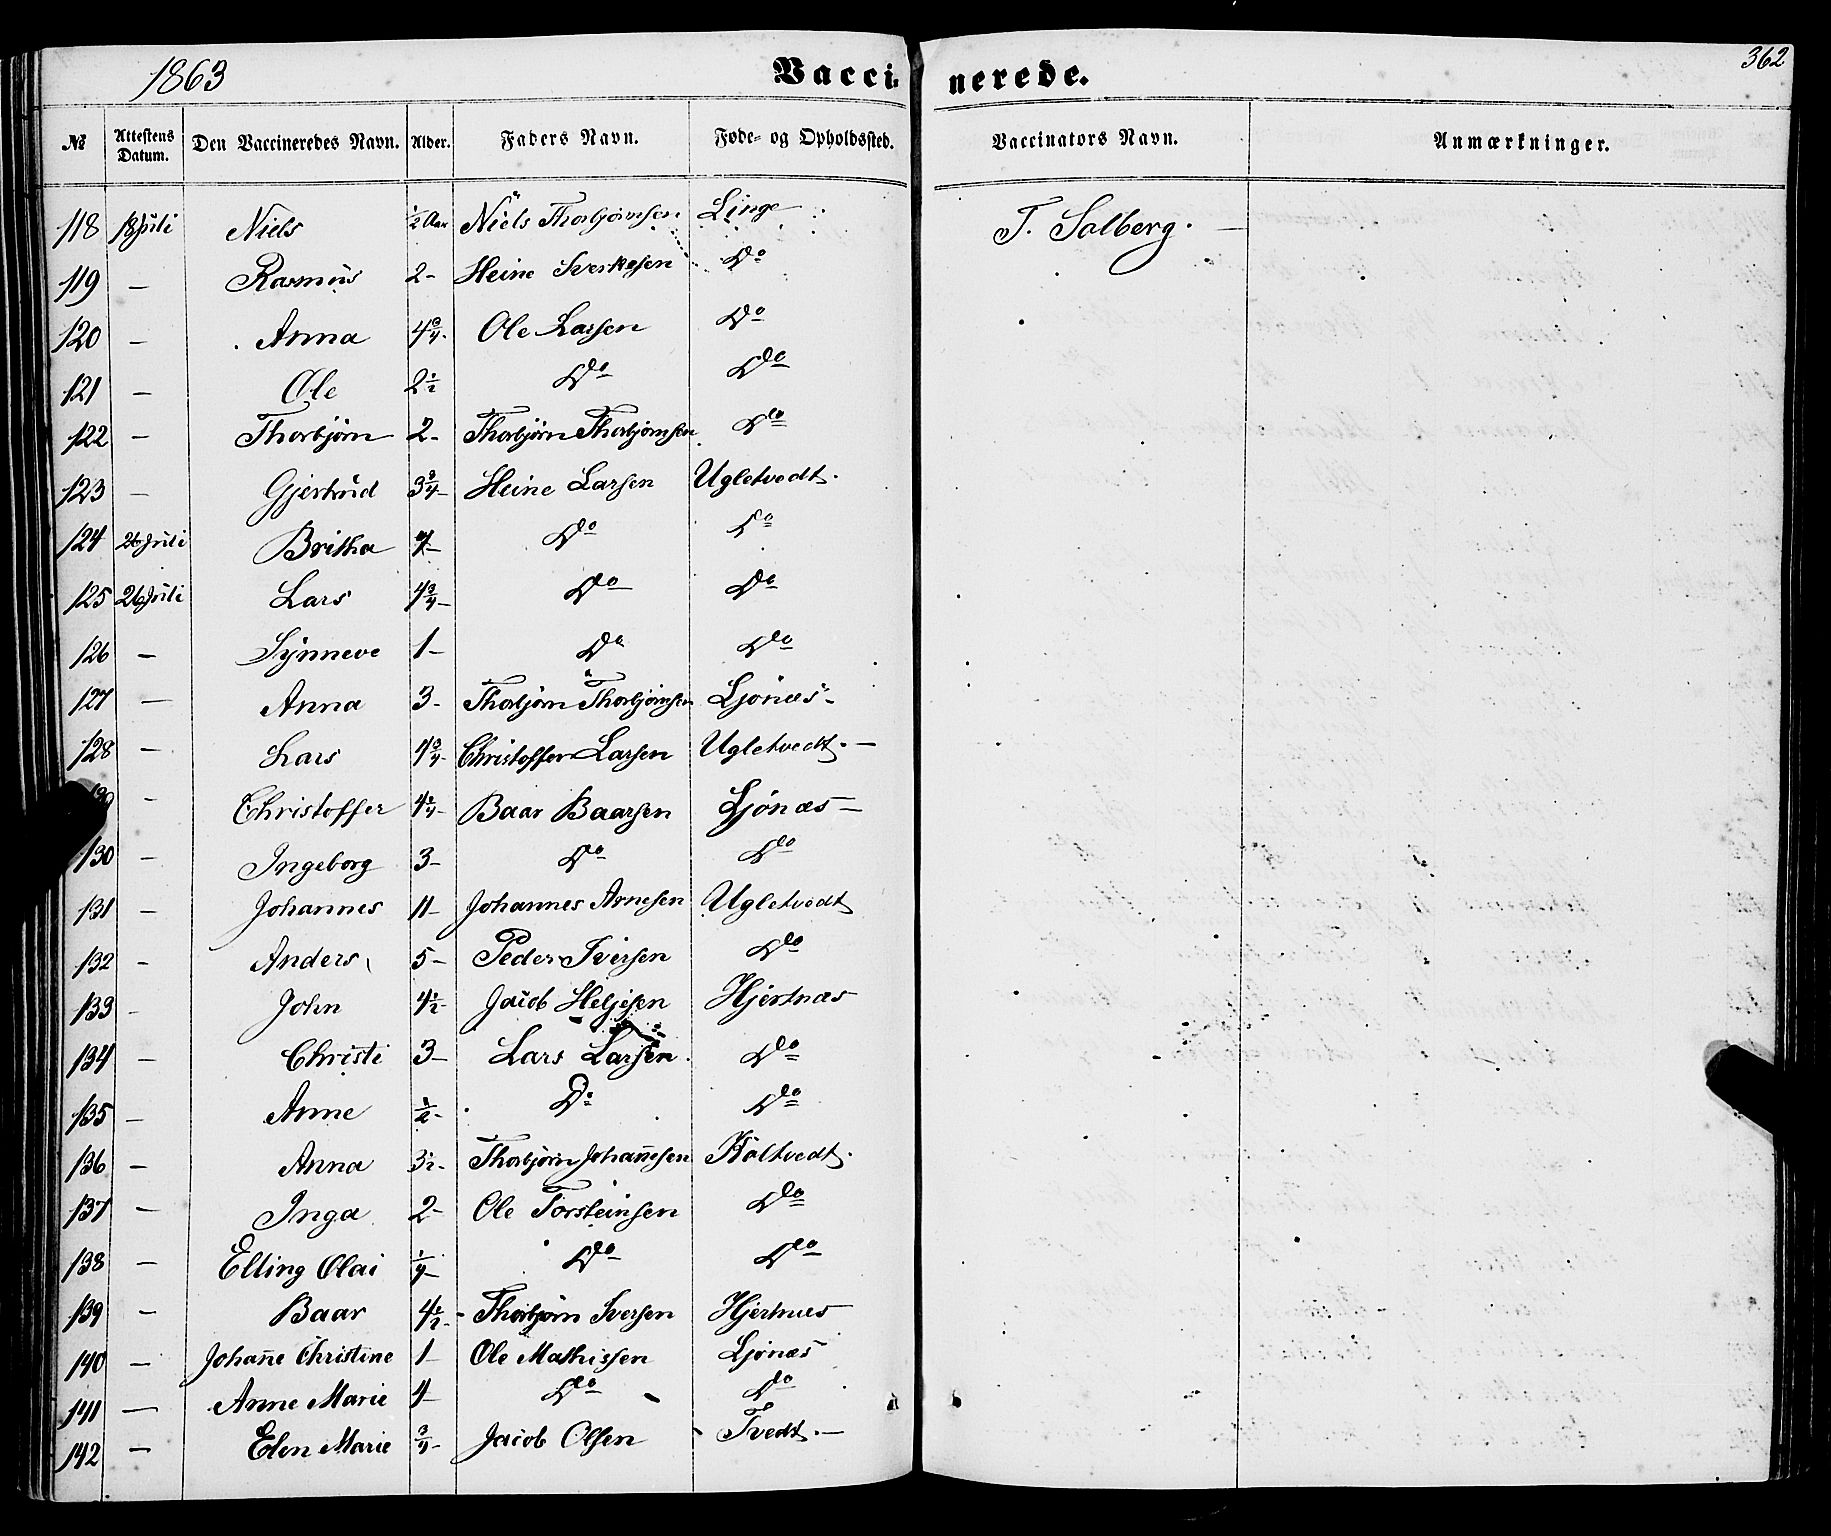 1863 Vaccinerede. 362
№ Attestens Datum. Den Vaccineredes Navn. Alder. Faders Navn. Føde- og Opholdssted. Vaccinators Navn. Anmærkninger.
118 18 Juli Niels ½ Aar Niels Thorbjørnsen Linge T. Solberg.
119 — Rasmus 2 - Heine Do
120 — Anna 4¾ - Ole Larsen Do
121 — Ole 2½ Do Do
122 — Thorbjørn 2 - Thorbjørn Thorbjørnsen Do
123 — Gjertrud 3¾ - Heine Larsen Ugletvedt.
124 26 Juli Britha 7 - Do Do
125 26 Juli Lars 4¾ - Do Do
126 — Synneve 1 - Do Do
127 — Anna 3 - Thorbjørn Thorbjørnsen Ljønæs -
128 — Lars 4¾ - Christoffer Larsen Ugletvedt. —
129 — Christoffer 4¼ - Baar Baarsen Ljønæs —
130 — Ingeborg 3 - Do Do
131 — Johannes 11 - Johannes Arnesen Ugletvedt
132 — Anders 5 - Peder Iversen Do
133 - John 4½ - Jacob Heljesen Hjertnæs
134 — Christi 3 - Lars Larsen Do
135 — Anne ½ - Do Do
136 — Anna 3½ - Thorbjørn Johan̄esen Kaltvedt.
137 — Inga 2 - Ole Torsteinsen Do
138 — Elling Olai ¼ - Do Do
139 — Baar 4½ - Thorbjørn Iversen Hjertnæs
140 — Johan̄e Christine 1 - Ole Mathissen Ljønæs
141 — Anne Marie 4 - Do Do
142 — Elen Marie ¾ - Jacob Olsen Tvedt. —